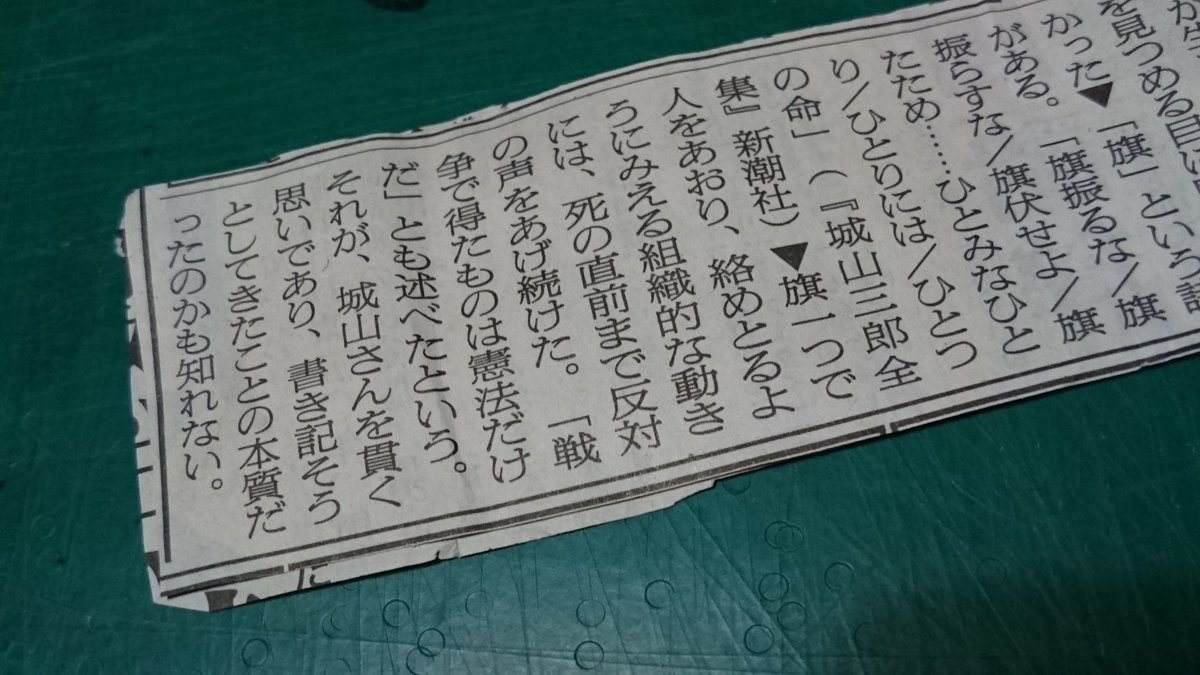 が生
を見つめる目に
かった▼「旗」という詩
がある。「旗振るな/旗
振らすな/旗伏せよ/旗
たため……ひとみなひと
り/ひとりには/ひとつ
の命」(『城山三郎全
集』新潮社)▼旗一つで
人をあおり、絡めとるよ
うにみえる組織的な動き
には、死の直前まで反対
の声をあげ続けた。「戦
争で得たものは憲法だけ
だ」とも述べたという。
それが、城山さんを貫く
思いであり、書き記そう
としてきたことの本質だ
ったのかも知れない。